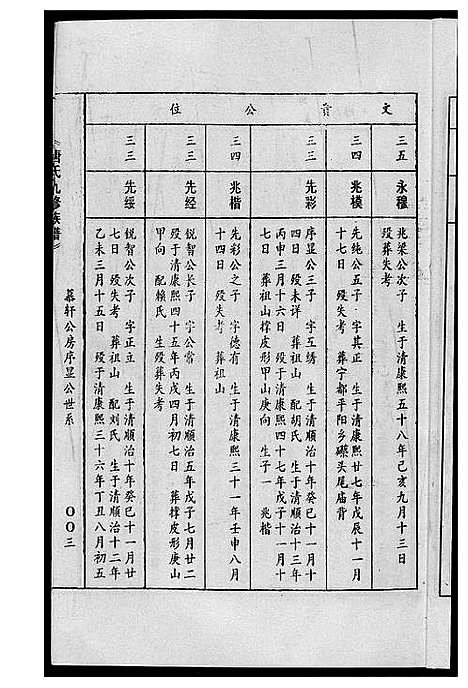 文贡公位
三五 永穆
兆梁公次子 生于清康熙五十八年己亥九月十三日
殁葬失考
三四 兆模
先纯公五子 字其正 生于清康熙廿七年戊辰十一月
十七日 殁失考 葬宁都平阳乡磜头尾庙背
三三 先彩
序显公三子 字互绣 生于清顺治十年癸巳十一月十
四日 殁未详 葬祖山 配胡氏 生于清顺治十三年
丙申三月十六日 殁于清康熙四十七年戊子十一月十
七日 葬祖山撑皮形甲山庚向 生子一 兆楷
三四 兆楷
先彩公之子 字德有 生于清康熙三十一年壬申八月
十四日 殁失考 葬祖山
三三 先经
锐智公长子 字公常 生于清顺治五年戊子七月廿二
殁于清康熙四十五年丙戌四月初七日 葬撑皮形庚山
甲向 配赖氏 生殁葬失考
三三 先绥
锐智公次子 字正立 生于清顺治十年癸巳十一月廿
七日 殁失考 葬祖山 配刘氏 生于清顺治十二年
乙未三月十五日 殁于清康熙三十六年丁丑八月初五
氏九修族谱
慕轩公房序显公世系
〇〇三